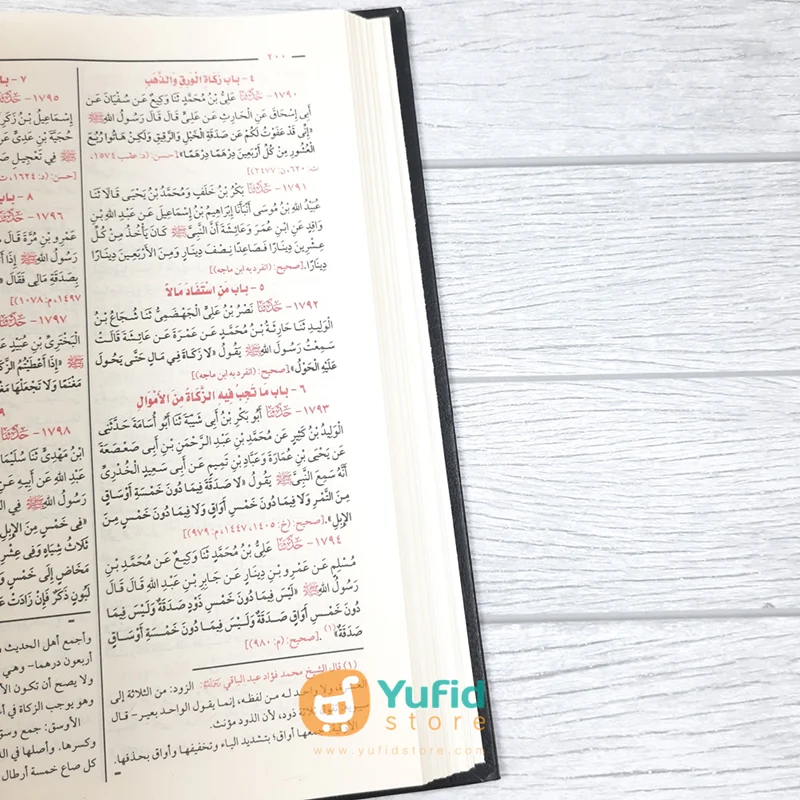 ٢٠٠
٤ - باب زكاة الورق والذهب
١٧٩٠ - حدثنا عَلِيُّ بْنُ مُحَمَّدٍ ثَنَا وَكِيعٌ عَن سُفْيَانَ عَن
أَبِي إِسْحَاقَ عَنِ الْحَارِثِ عَن عَلِيٍّ قَالَ قَالَ رَسُولُ اللهِ ﷺ
«إِنِّي قَدْ عَفَوْتُ لَكُمْ عَن صَدَقَةِ الْخَيْلِ وَالرَّقِيقِ وَلَكِنْ هَاتُوا رُبُعَ
الْعُشُورِ مِنْ كُلِّ أَرْبَعِينَ دِرْهَمًا دِرْهَمًا».[حسن: (د: عقب ١٥٧٤،
ت: ٦٢٠، ن: ٢٤٧٧)]
١٧٩١ - حدثنا بَكْرُ بْنُ خَلَفٍ وَمُحَمَّدُ بْنُ يَحْيَى قَالَا ثَنَا
عُبَيْدُ اللهِ بْنُ مُوسَى أَنْبَأَنَا إِبْرَاهِيمُ بْنُ إِسْمَاعِيلَ عَن عَبْدِ اللهِ بْنِ
وَاقِدٍ عَنِ ابْنِ عُمَرَ وَعَائِشَةَ أَنَّ النَّبِيَّ ﷺ كَانَ يَأْخُذُ مِنْ كُلِّ
عِشْرِينَ دِينَارًا فَصَاعِدًا نِصْفَ دِينَارٍ وَمِنَ الْأَرْبَعِينَ دِينَارًا
دِينَارًا.[صحيح: (انفرد به ابن ماجه)]
٥ - باب من استفاد مالاً
١٧٩٢ - حدثنا نَصْرُ بْنُ عَلِيٍّ الْجَهْضَمِيُّ ثَنَا شُجَاعُ بْنُ
الْوَلِيدِ ثَنَا حَارِثَةُ بْنُ مُحَمَّدٍ عَن عَمْرَةَ عَن عَائِشَةَ قَالَتْ
سَمِعْتُ رَسُولَ اللهِ ﷺ يَقُولُ «لَا زَكَاةَ فِي مَالٍ حَتَّى يَحُولَ
عَلَيْهِ الْحَوْلُ».[صحيح: (انفرد به ابن ماجه)]
٦ - باب ما تجب فيه الزكاة من الأموال
١٧٩٣ - حدثنا أَبُو بَكْرِ بْنُ أَبِي شَيْبَةَ ثَنَا أَبُو أُسَامَةَ حَدَّثَنِي
الْوَلِيدُ بْنُ كَثِيرٍ عَن مُحَمَّدِ بْنِ عَبْدِ الرَّحْمَنِ بْنِ أَبِي صَعْصَعَةَ
عَن يَحْيَى بْنِ عُمَارَةَ وَعَبَّادِ بْنِ تَمِيمٍ عَن أَبِي سَعِيدٍ الْخُدْرِيِّ
أَنَّهُ سَمِعَ النَّبِيَّ ﷺ يَقُولُ «لَا صَدَقَةَ فِيمَا دُونَ خَمْسَةِ أَوْسَاقٍ
مِنَ التَّمْرِ وَلَا فِيمَا دُونَ خَمْسِ أَوَاقٍ وَلَا فِيمَا دُونَ خَمْسٍ مِنَ
الْإِبِلِ».[صحيح: (خ: ١٤٠٥، ١٤٤٧، م: ٩٧٩)]
١٧٩٤ - حدثنا عَلِيُّ بْنُ مُحَمَّدٍ ثَنَا وَكِيعٌ عَن مُحَمَّدِ بْنِ
مُسْلِمٍ عَن عَمْرِو بْنِ دِينَارٍ عَن جَابِرِ بْنِ عَبْدِ اللهِ قَالَ قَالَ
رَسُولُ اللهِ ﷺ «لَيْسَ فِيمَا دُونَ خَمْسِ ذَوْدٍ صَدَقَةٌ وَلَيْسَ فِيمَا
دُونَ خَمْسِ أَوَاقٍ صَدَقَةٌ وَلَيْسَ فِيمَا دُونَ خَمْسَةِ أَوْسَاقٍ
صَدَقَةٌ»(١).[صحيح: (م: ٩٨٠)]
(١) قال الشيخ محمد فؤاد عبد الباقي: الزود: من الثلاثة إلى
العشرة، ولا واحد له من لفظه، إنما يقول الواحد بعير- قال
ذود، لأن الذود مؤنث.
أواق؛ بتشديد الياء وتخفيفها وأواق بحذفها.
٧ - باب
١٧٩٥ - حدثنا
إِسْمَاعِيلُ بْنُ زَكَرِ
حُجَيَّةَ بْنِ عَدِيٍّ عَن
ﷺ فِي تَعْجِيلِ صَ
[حسن: (د: ١٦٢٤، ت
٨ - باب
١٧٩٦ - حدثنا
عَمْرِو بْنِ مُرَّةَ قَالَ سَ
رَسُولُ اللهِ ﷺ إِذَا أَ
بِصَدَقَةِ مَالِي فَقَالَ
١٤٩٧، م: ١٠٧٨)]
١٧٩٧ - حدثنا
الْبَخْتَرِيِّ بْنِ عُبَيْدٍ عَ
ﷺ «إِذَا أَعْطَيْتُمُ الزَّكَ
مَغْنَمًا وَلَا تَجْعَلْهَا مَغْ
٩
١٧٩٨ - حدثنا
ابْنُ مَهْدِيٍّ ثَنَا سُلَيْمَا
عَبْدِ اللهِ عَن أَبِيهِ عَن
رَسُولُ اللهِ ﷺ فِي ال
«فِي خَمْسٍ مِنَ الْإِبِلِ
ثَلَاثُ شِيَاهٍ وَفِي عِشْرِ
مَخَاضٍ إِلَى خَمْسٍ وَ
لَبُونٍ ذَكَرٌ فَإِنْ زَادَتْ عَ
وأجمع أهل الحديث
أربعون درهما- وهي
ولا يصح أن تكون الأ
وهو يوجب الزكاة في أ
الأوسق: جمع وسق
وكسرها. وأصلها في الل
كل صاع خمسة أرطال
Yufid
store
www.yufidstore.com